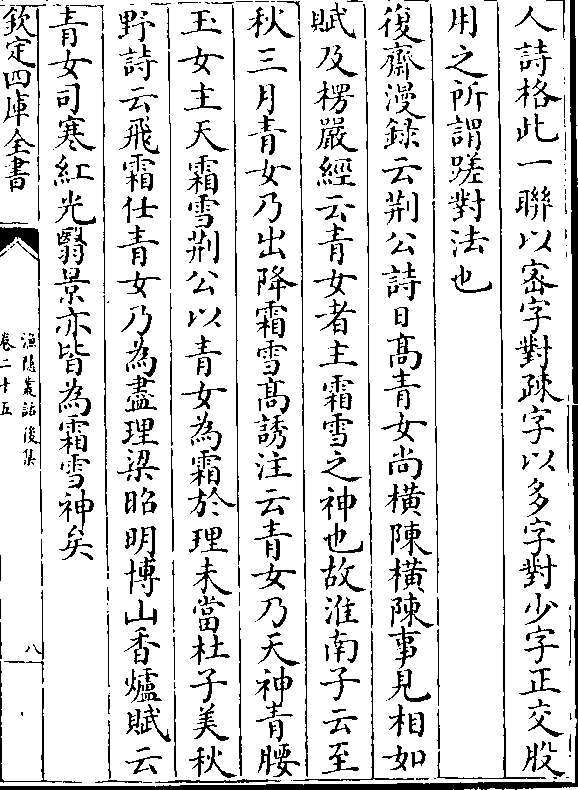 人詩格此一聯以密字對疎字以多字對少字正交股
用之所謂蹉對法也
復齋漫録云荆公詩日髙青女尚橫陳橫陳事見相如
賦及楞嚴經云青女者主霜雪之神也故淮南子云至
秋三月青女乃出降霜雪髙誘注云青女乃天神青腰
玉女主天霜雪荆公以青女為霜於理未當杜子美秋
野詩云飛霜任青女乃為盡理梁昭明博山香爐賦云
青女司寒紅光翳景亦皆為霜雪神矣
欽定四庫全書
漁隱叢話後集
卷二十五
八